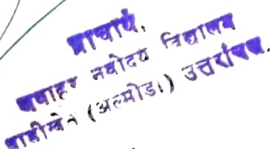 प्राचार्य,
जवाहर नवोदय विद्यालय
ताड़ीखेत (अल्मोड़ा) उत्तरांचल.